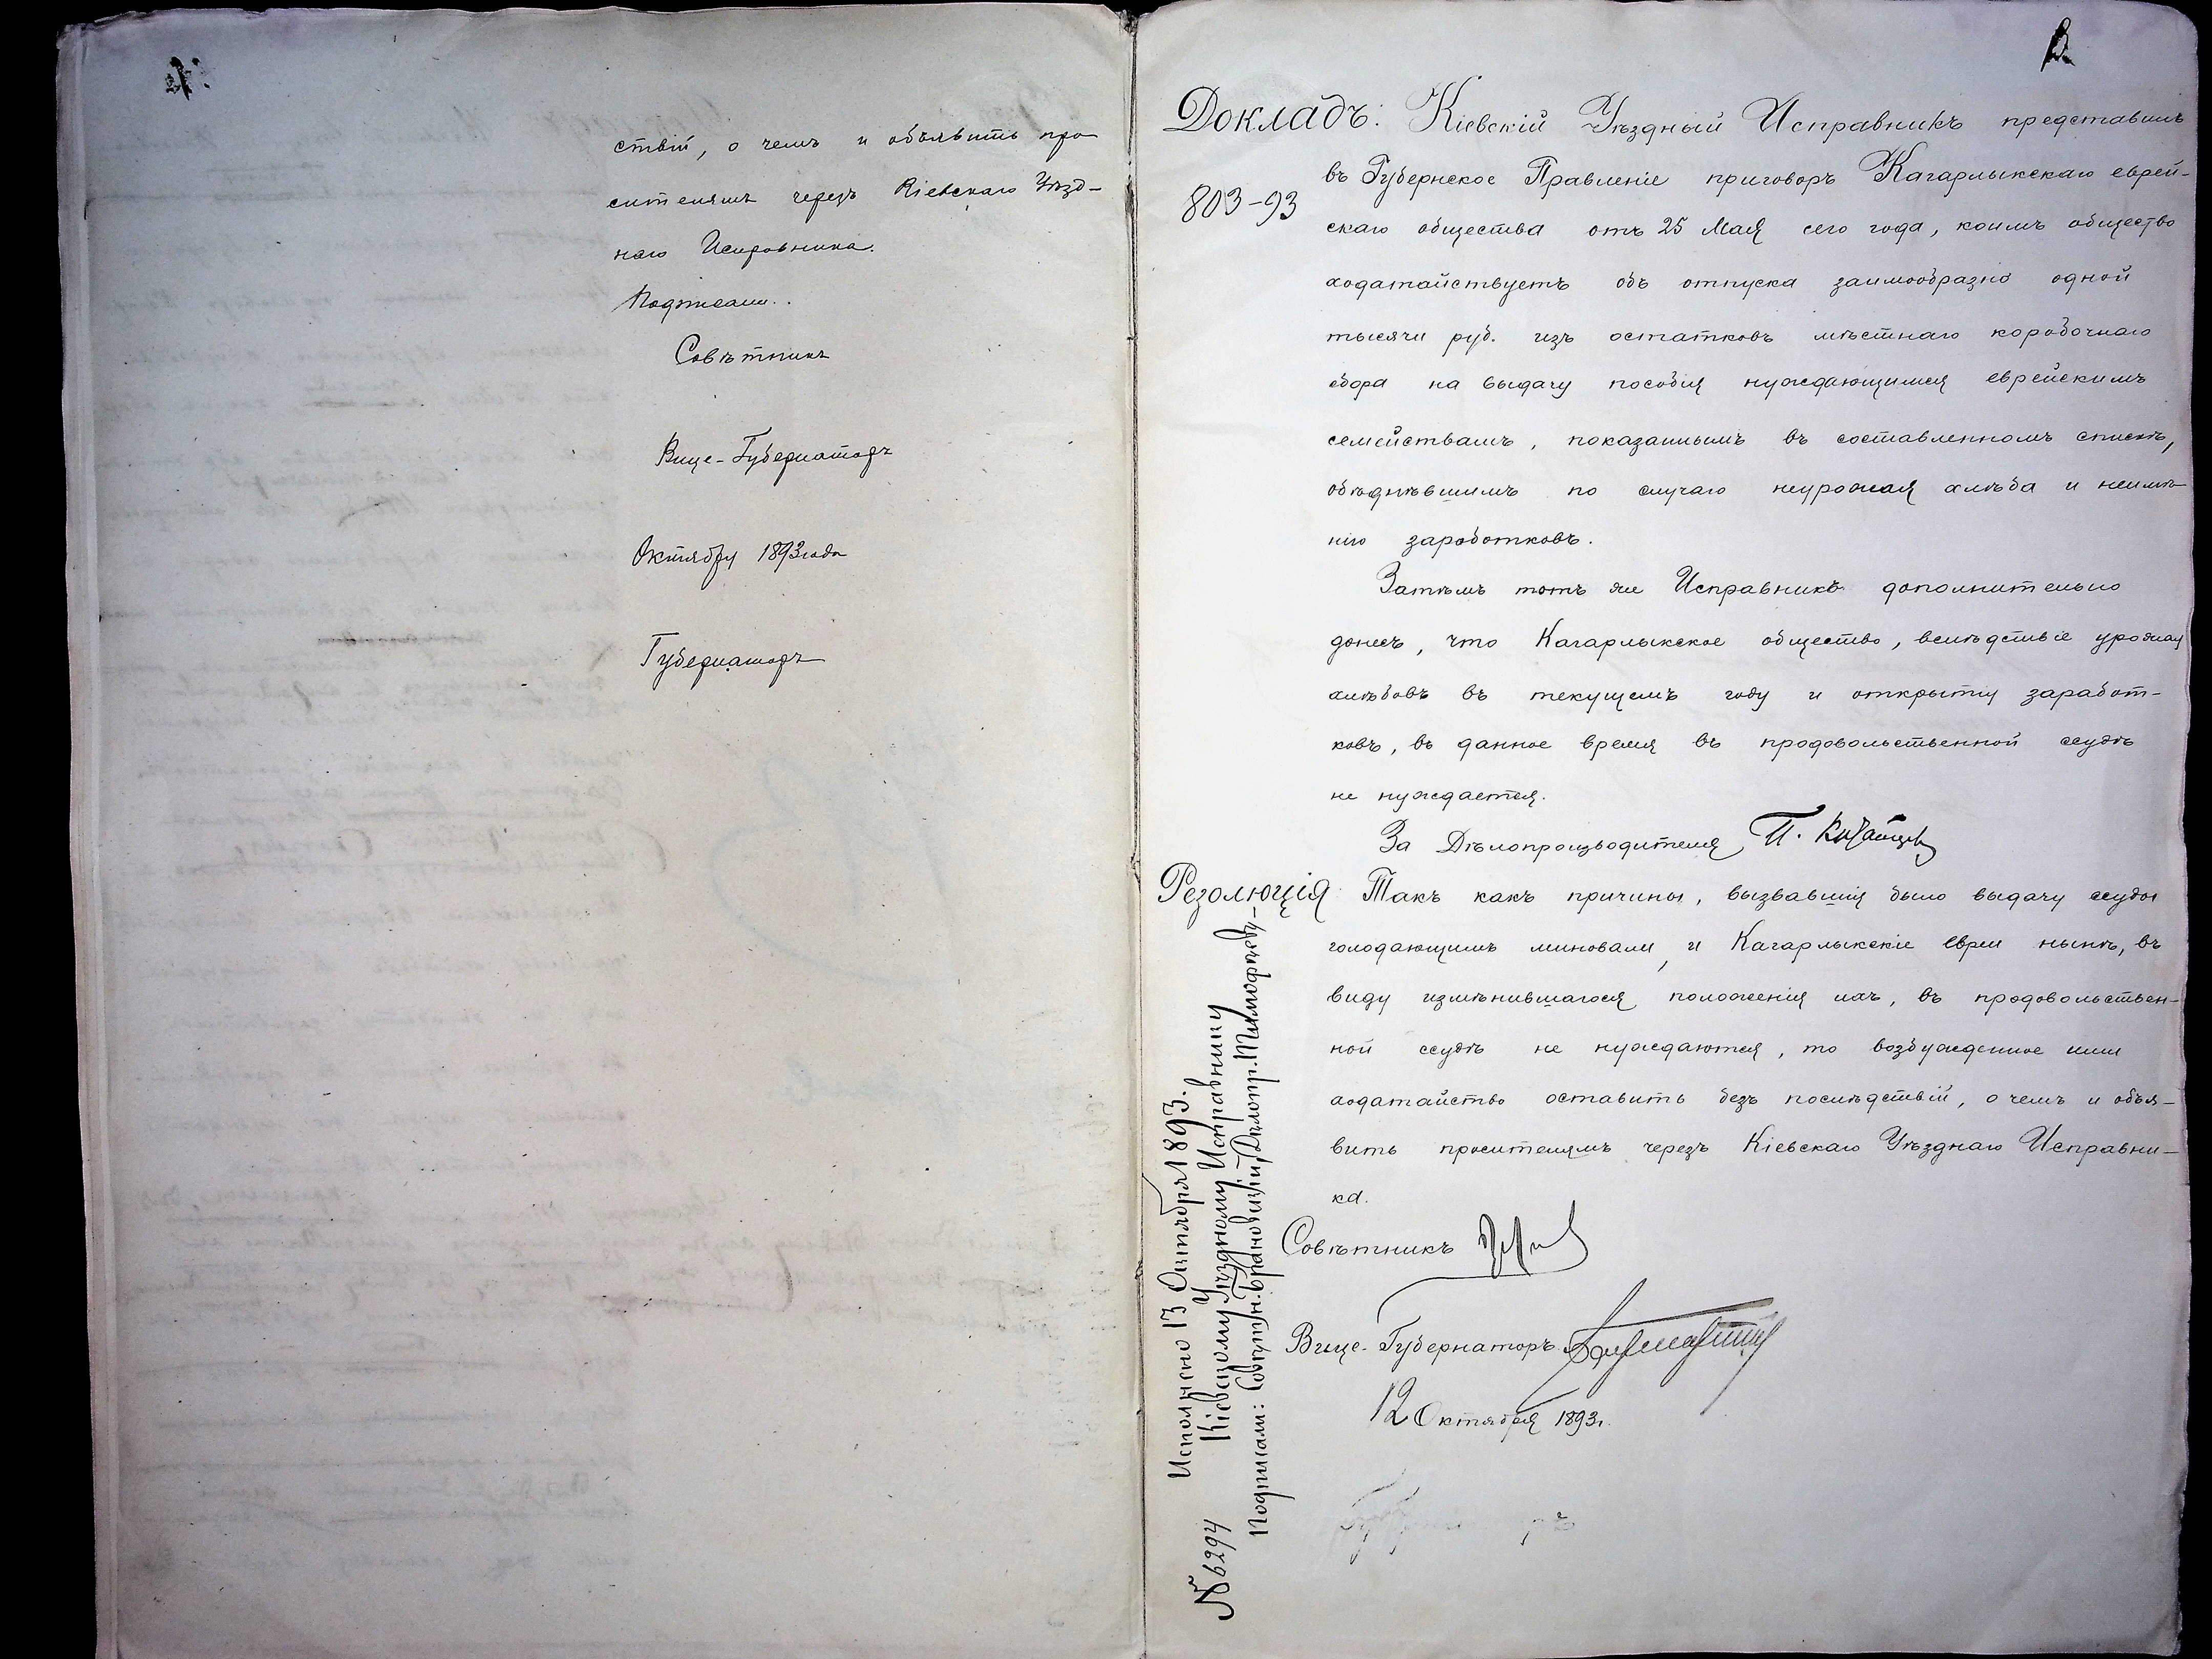 ствій, о чемъ и объявить про
сителямъ черезъ Кіевскаго Уѣзд-
наго Исправника.
Подписали..
Совѣтникъ
Вице-Губернаторъ
Октября 1893 года
Губернаторъ
Докладъ: Кіевскій Уѣздный Исправникъ представилъ
803-93
въ Губернское Правленіе приговоръ Кагарлыкскаго еврей-
скаго общества отъ 25 Мая сего года, коимъ общество
ходатайствуетъ объ отпуска заимообразно одной
тысячи руб. изъ остатковъ мѣстнаго коробочнаго
сбора на выдачу пособія нуждающимся еврейскимъ
семействамъ, показаннымъ въ составленномъ спискѣ,
обѣднѣвшимъ по случаю неурожая хлѣба и неимѣ-
нію заработковъ.
Затѣмъ тотъ же Исправникъ дополнительно
донесъ, что Кагарлыкское общество, вслѣдствіе урожая
хлѣбовъ въ текущемъ году и открытія заработ-
ковъ, въ данное время въ продовольственной ссудѣ
не нуждается.
За Дѣлопроизводителя П.
Резолюція Такъ какъ причины, вызвавшія было выдачу ссуды
голодающимъ миновали, и Кагарлыкскіе евреи нынѣ, въ
виду измѣнившагося положенія ихъ, въ продовольствен-
ной ссудѣ не нуждаются, то возбужденное ими
ходатайство оставить безъ послѣдствій, о чемъ и объя-
вить просителямъ черезъ Кіевскаго Уѣзднаго Исправни-
ка.
Совѣтникъ
Вице-Губернаторъ
12 Октября 1893г.
№ 6294
Исполнено 13 Октября 1893.
Кіевскому Уѣздному Исправнику
Подписали: Совѣтн. Брановицій, Дѣлопр. Тимофѣевъ